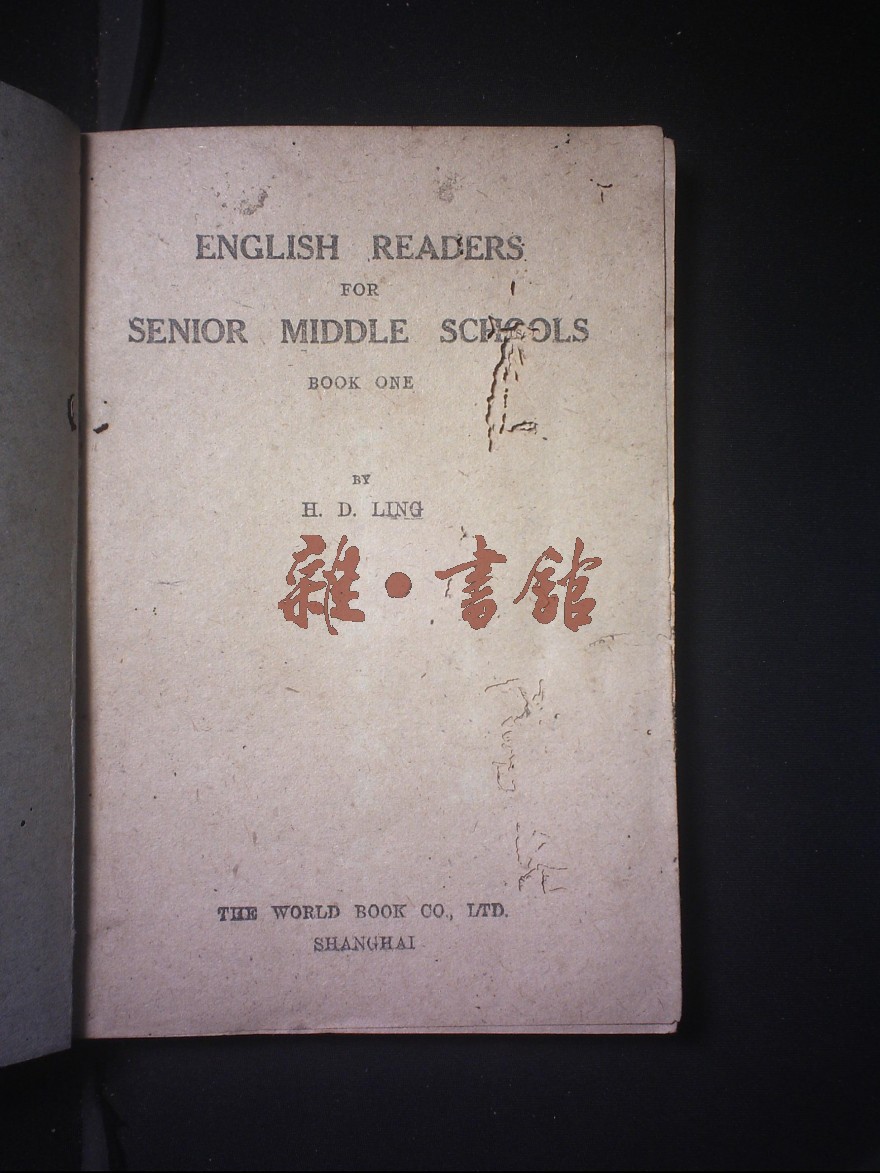 ENGLISH READERS
FOR
SENIOR MIDDLE SCHOOLS
BOOK ONE
BY
H. D. LING
雜·書館
THE WORLD BOOK CO., LTD.
SHANGHAI